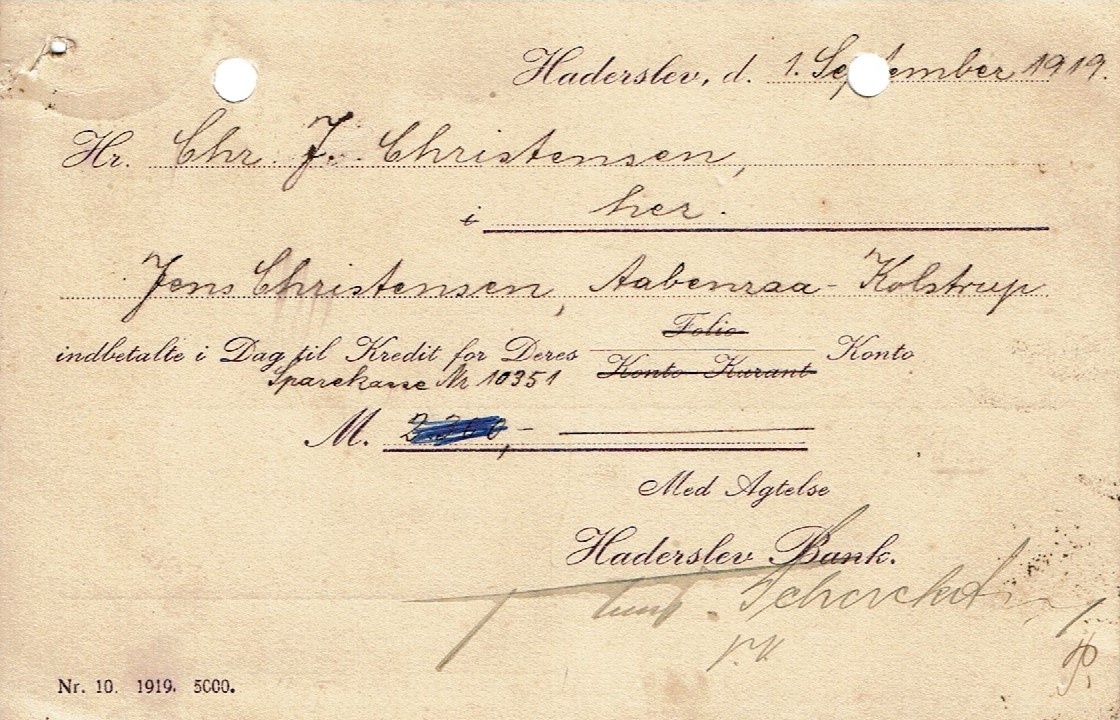 Haderslev, d. 1. September 1919.
Hr. Chr. J. Christensen,
i her.
Jens Christensen, Aabenraa-Kolstrup
Folio
indbetalte i Dag til Kredit for Deres Konto
Konto Kurant
Sparekasse Nr 10351
M. 2200,-
Med Agtelse
Haderslev Bank.
Nr. 10. 1919. 5000.